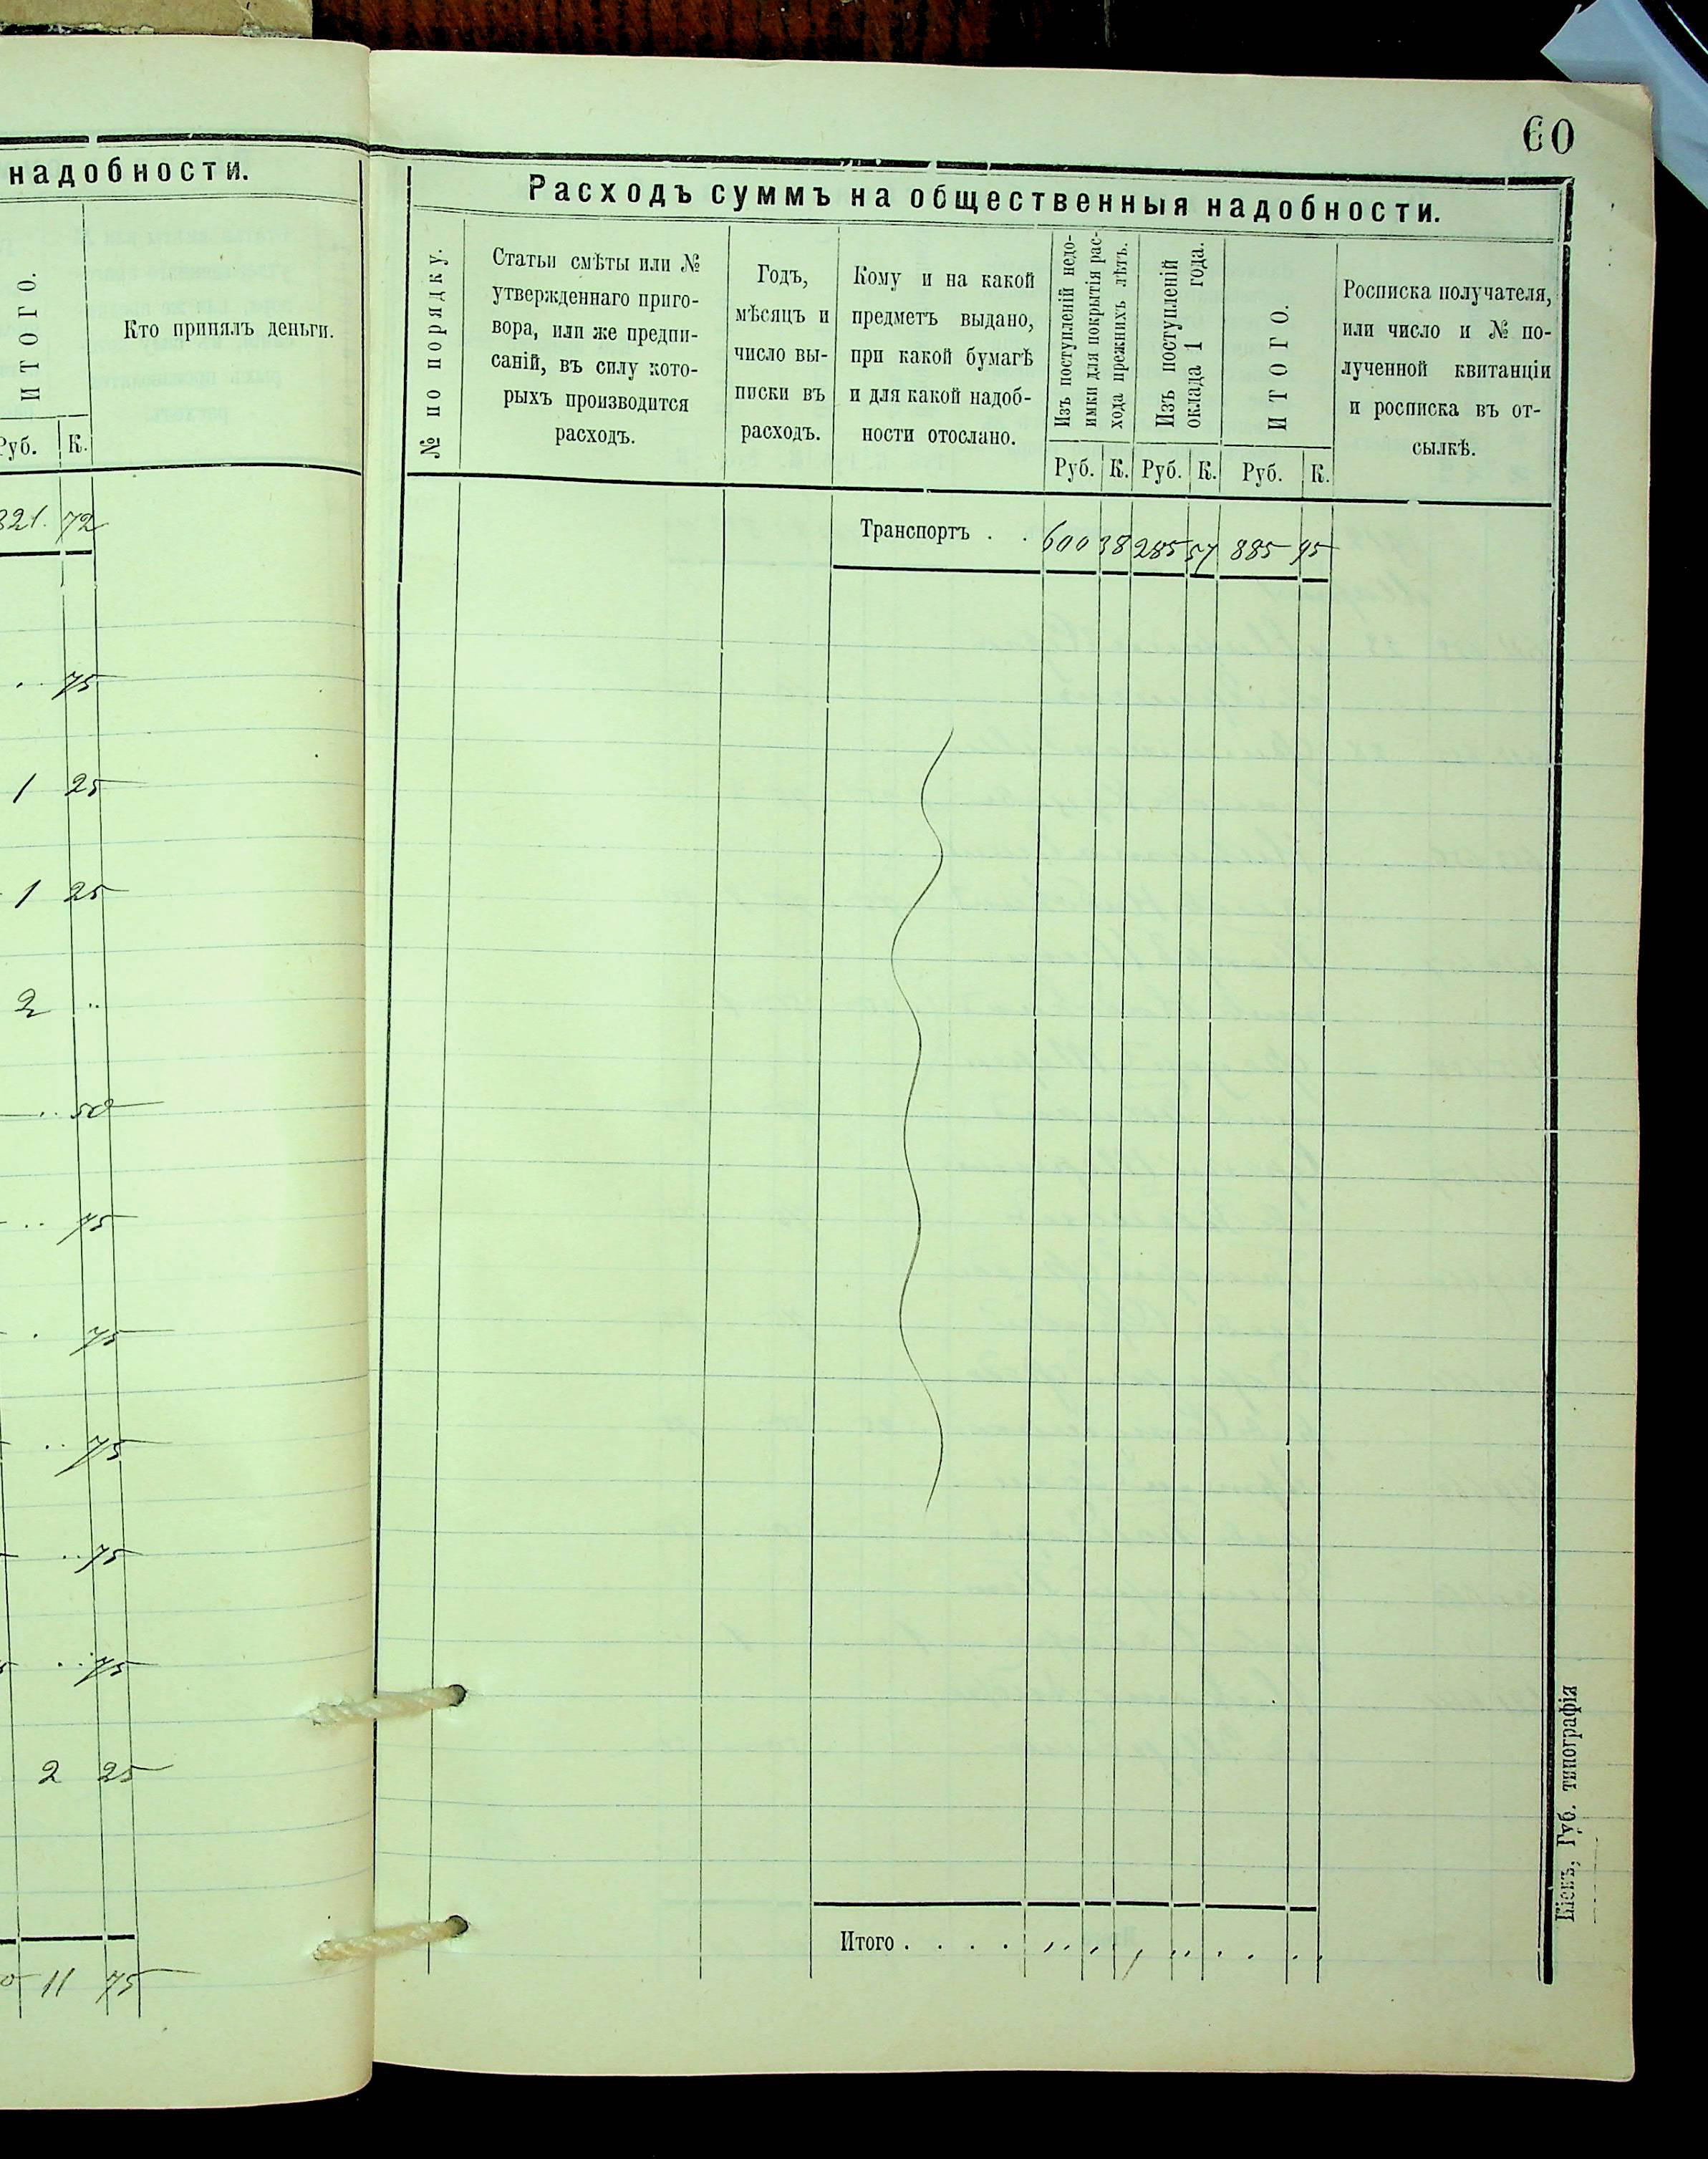 надобности.
ИТОГО.
Кто принялъ деньги.
Руб. К.
321. 72
.. 75
1 25
1 25
2 ..
.. 50
.. 75
. 75
.. 75
.. 75
.. 75
2 25
11 75
60
Расходъ суммъ на общественныя надобности.
№ по порядку.
Статьи смѣты или №
утвержденнаго приго-
вора, или же предпи-
саній, въ силу кото-
рыхъ производится
расходъ.
Годъ,
мѣсяцъ и
число вы-
писки въ
расходъ.
Кому и на какой
предметъ выдано,
при какой бумагѣ
и для какой надоб-
ности отослано.
Изъ поступленій недо-
имки для покрытія рас-
хода прежнихъ лѣтъ.
Руб. К.
Изъ поступленій
оклада 1 года.
Руб. К.
ИТОГО.
Руб. К.
Росписка получателя,
или число и № по-
лученной квитанціи
и росписка въ от-
сылкѣ.
Транспортъ . . 600 38 285 57 885 95
Итого . . . .
Кіевъ, Губ. типографія